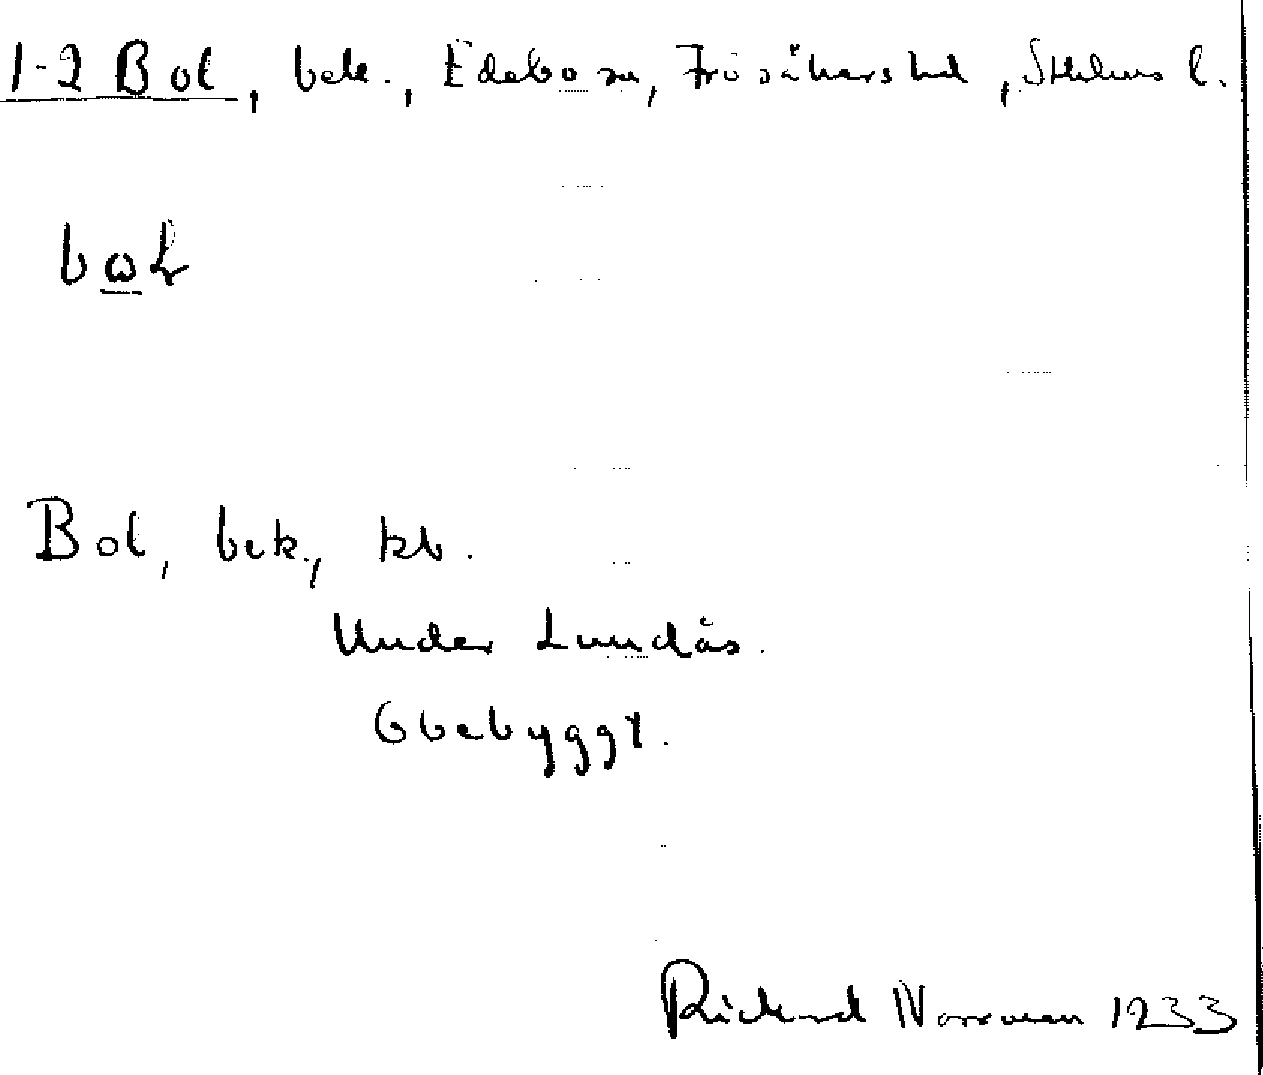 1-2 Bol, bek., Edebo sn, Frösåkers hd, Sthlms l.
bωł
Bol, bek., kb.
Under Lundås.
Obebyggt.
Rickard Norrman 1933